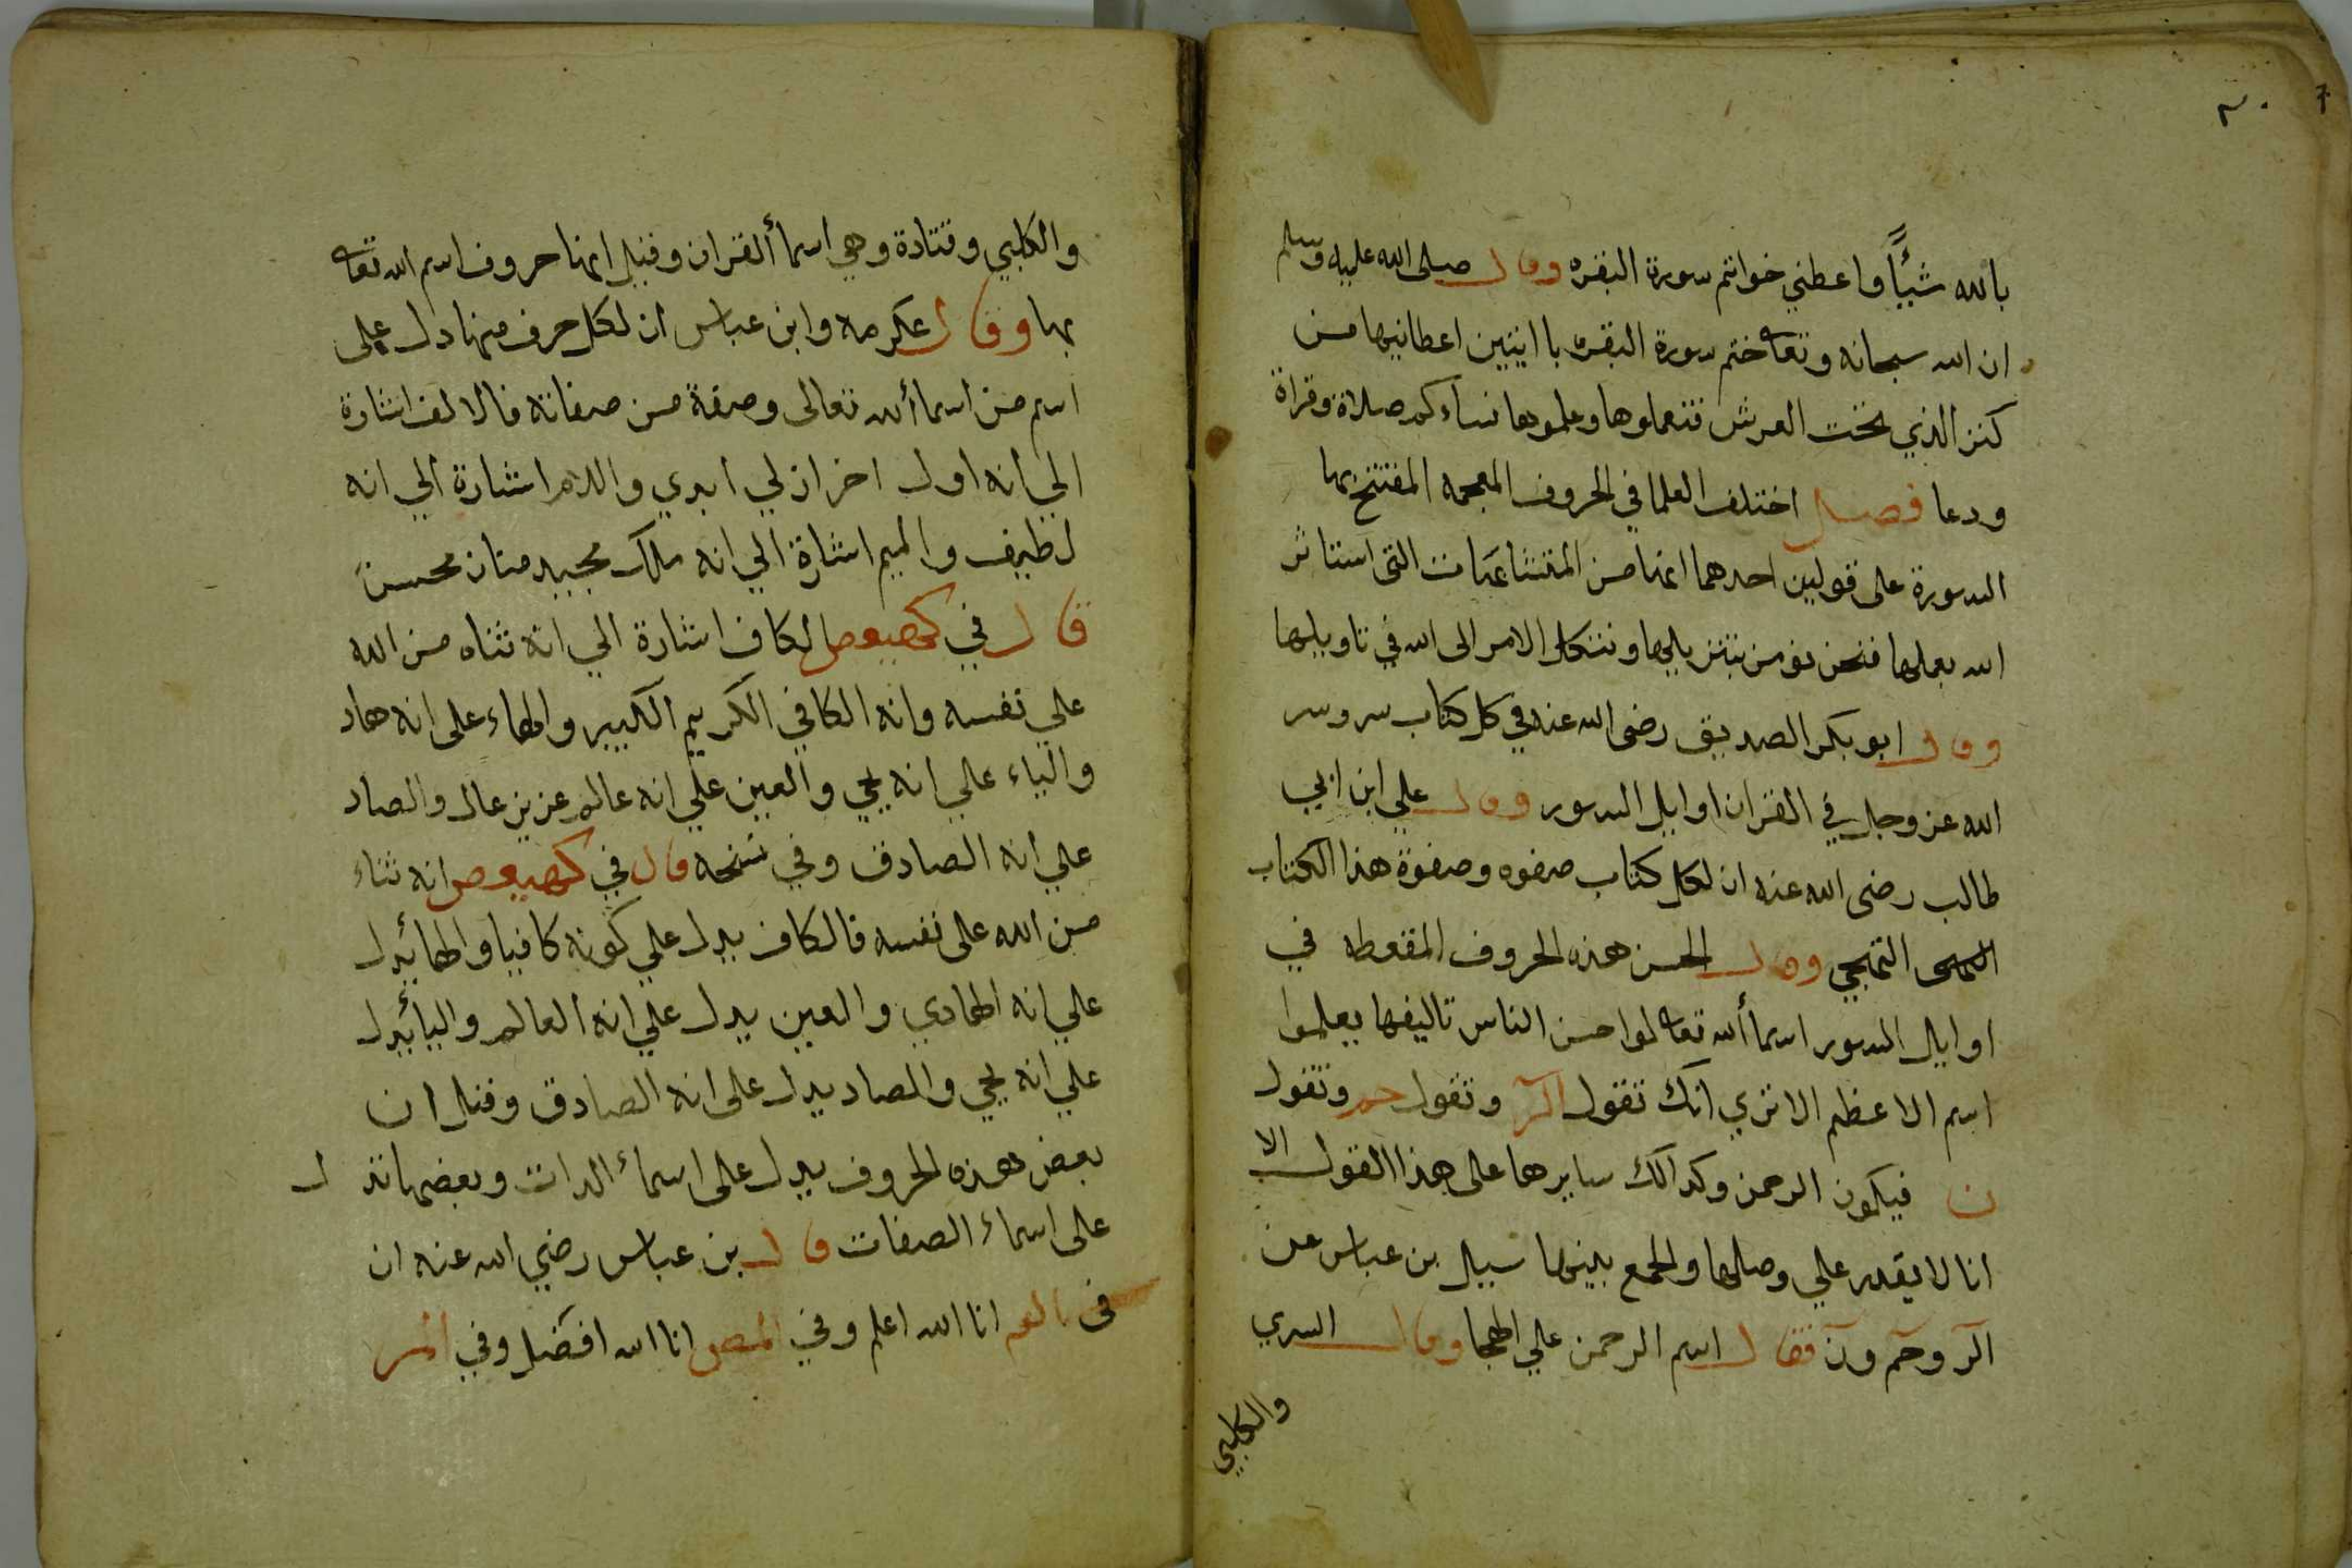 بالله شيًّا واعطني خواتم سورة البقره وقال صلى الله عليه وسلم
ان الله سبحانه وتعا ختم سورة البقره باايتين اعطانيها من
كنز الذي تحت العرش فتعملوها وعلموها نساءكم صلاة وقراة
ودعا فصل اختلف العلما في الحروف المعجمه المفتتح بها
السورة على قولين احدهما انها من المتشابهات التى استاثر
الله بعلمها فنحن نومن بتنزيلها ونتكل الامر الى الله في تاويلها
وقال ابو بكر الصديق رضى الله عنه في كل كتاب سر وسر
الله عز وجل في القران اوايل السور وقال علي ابن ابي
طالب رضى الله عنه ان لكل كتاب صفوه وصفوة هذا الكتاب
التهجي وقال الحسن هذه الحروف المقعوطه في
اوايل السور اسماء الله تعا لواحسن الناس تاليفها يعلموا
اسم الاعظم الا تري انك تقول الر وتقول حم وتقول
ن فيكون الرحمن وكدالك سايرها على هذا القول الا
انا لا يقدر علي وصلها والجمع بينها سيل بن عباس عن
الر وحم ون فقال اسم الرحمن علي الهجا وقال السري
والكلبي
والكلبي وقتادة وهي اسما القران وقيل انها حروف اسم الله تعا
بها وقال عكرمه وابن عباس ان لكل حرف منها دل على
اسم من اسماء الله تعالى وصفة من صفاته فالالف اشارة
الي انه اول اخر ازلي ابدي واللام اشارة الي انه
لطيف والميم اشارة الي انه ملك مجيد منان محسن
قال في كهيعص لكاف اشارة الي انه ثناه من الله
علي نفسه وانه الكافي الكريم الكبير والهاء على انه هاد
والياء علي انه يحي والعين علي انه عالم عزيز عال والصاد
علي انه الصادق وفي نسخه قال في كهيعص انه ثناء
من الله على نفسه فالكاف يدل علي كونه كافيا والهاء يدل
علي انه الهادي والعين يدل علي انه العالم والياء يدل
علي انه يحي والصاد يدل على انه الصادق وقيل ان
بعض هذه الحروف يدل على اسماء الدات وبعضها تدل
على اسماء الصفات قال بن عباس رضي الله عنه ان
فى الم انا الله اعلم وفي المص انا الله افضل وفي المر